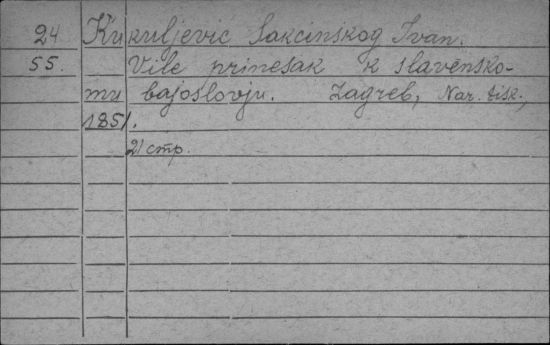 24 Kukuljevic Sakcinskog Ivan.
55. Vile prinesak k slavensko-
mu bajoslovju. Zagreb, Nar. tisk.,
1851.
21 стр.